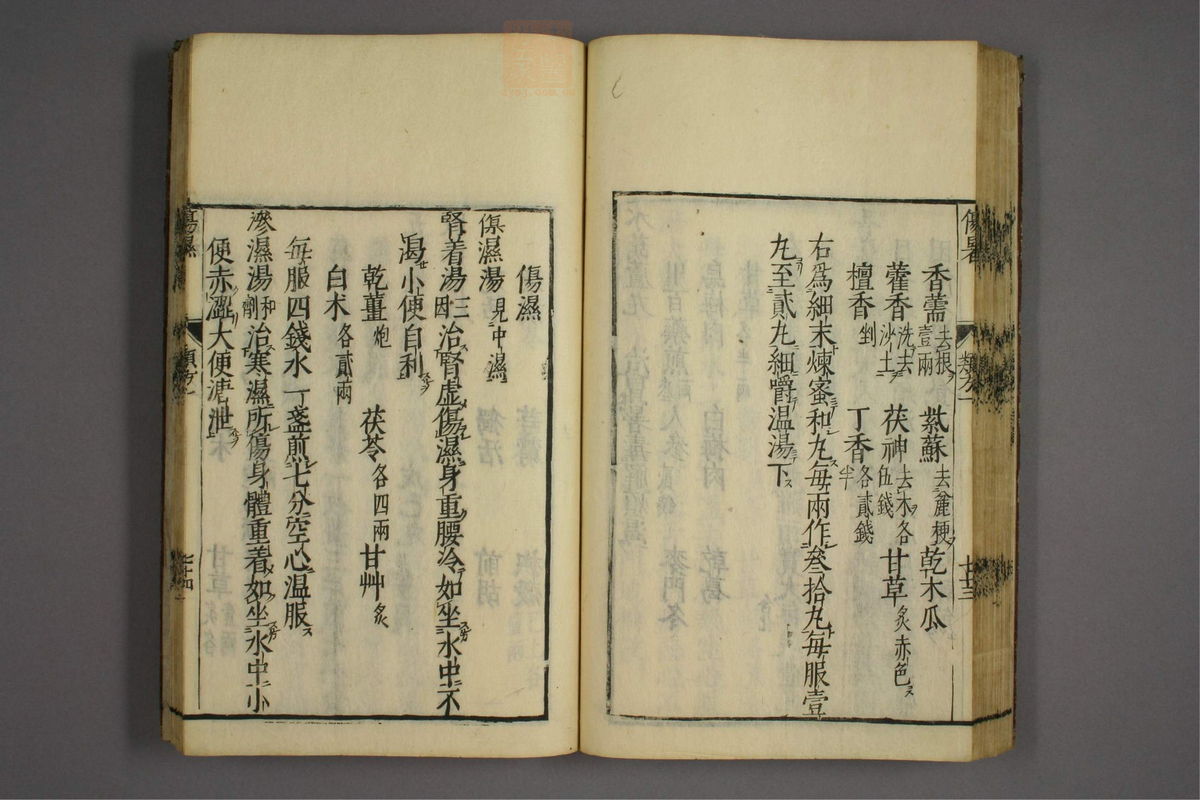 傷暑 類方一 七十三
香薷去根壹兩 紫蘇去麄梗 乾木瓜
藿香洗去沙土 茯神去木各伍錢 甘草炙赤色
檀香剉 丁香各貳錢半
右爲細末煉蜜和丸每兩作叄拾丸每服壹
丸至貳丸細嚼温湯下
傷濕
𣸣濕湯見中濕
腎着湯三因治腎虛傷濕身重腰冷如坐水中不
渴小便自利
乾薑炮 茯苓各四兩 甘艸炙
白朮各貳兩
每服四錢水一盞煎七分空心温服
滲濕湯和劑治寒濕所傷身體重着如坐水中小
便赤澀大便溏泄
傷濕 類方一 七十四